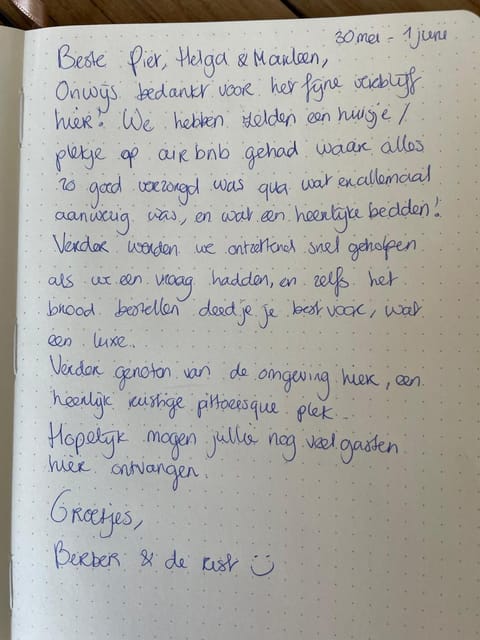 30 mei - 1 june
Beste Pier, Helga & Marleen,
Onwijs bedankt voor het fijne verblijf
hier! We hebben zelden een huisje /
plekje op airbnb gehad waar alles
zo goed verzorgd was qua wat er allemaal
aanwezig was, en wat een heerlijke bedden!
Verder werden we ontzettend snel geholpen
als we een vraag hadden, en zelfs het
brood bestellen deed je je best voor, wat
een luxe.
Verder genoten van de omgeving hier, een
heerlijk rustige pittoresque plek.
Hopelijk mogen jullie nog veel gasten
hier ontvangen.
Groetjes,
Berber & de rest